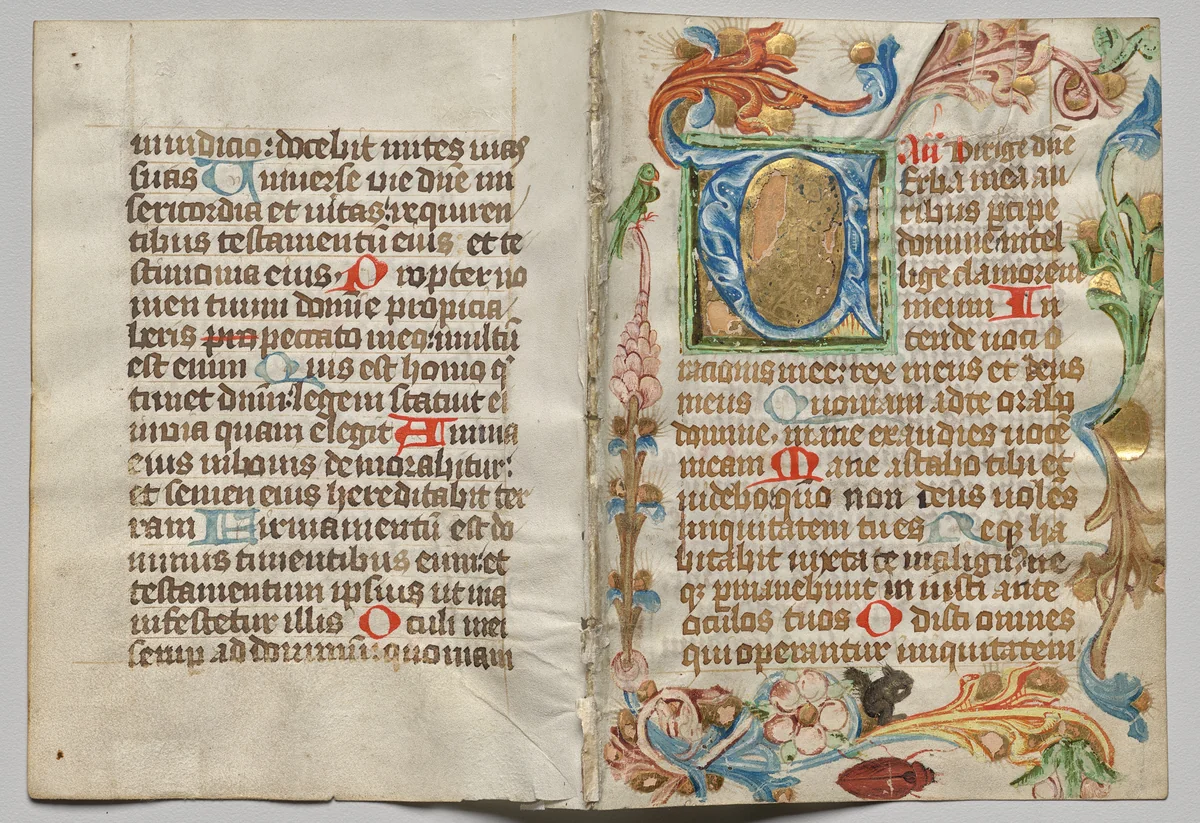 in iudicio: docebit mites uias
suas Uniuerse uie dn̄e mi
sericordia et uitas: requiren
tibus testamentū eius et te
stimonia eius. Propter no
men tuum domine propicia
beris pro peccato meo: multū
est enim Quis est homo q̇
timet dn̄m: legem statuit ei
in uia quam elegit Anima
eius in bonis demorabitur:
et semen eius hereditabit ter
ram Firmamentū est do
minus timentibus eum: et
testamentum ipsius ut ma
nifestetur illis Oculi mei
semp ad dominū quoniam
Añ Dirige dn̄e
U Erba mea au
ribus p̄cipe
domine: intel
lige clamorem
meum In
tende uoci o
racionis mee: rex meus et deus
meus Quoniam ad te orabo
domine, mane exaudies uocē
meam Mane astabo tibi et
uidebo: quo non deus uolēs
iniquitatem tu es Neqȝ ha
bitabit iuxta te malign9 : ne
qȝ p̄manebunt iniusti ante
oculos tuos Odisti omnes
qui operantur iniquitatem